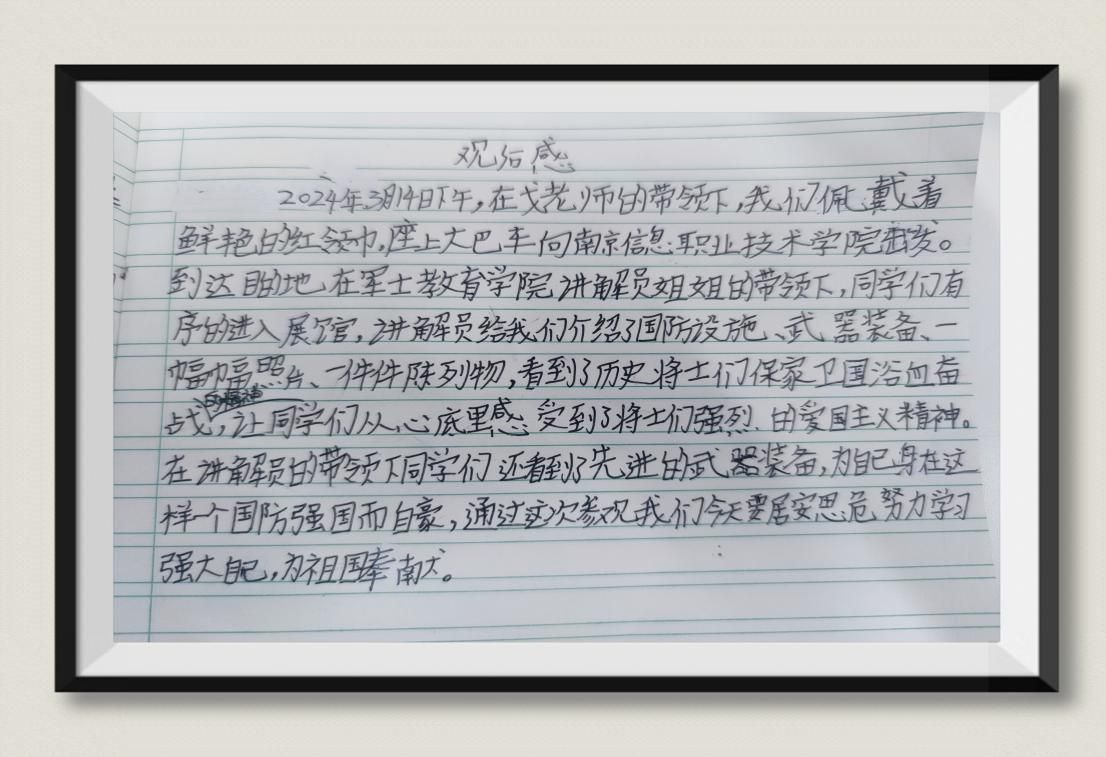 观后感
2024年3月14日下午,在戈老师的带领下,我们佩戴着
鲜艳的红领巾,座上大巴车向南京信息职业技术学院出发。
到达目的地,在军士教育学院讲解员姐姐的带领下,同学们有
序的进入展馆,讲解员给我们介绍了国防设施、武器装备、一
幅幅照片、一件件陈列物,看到了历史将士们保家卫国浴血奋
战,让同学们从心底里感受到了将士们强烈的爱国主义精神。
在讲解员的带领下同学们还看到了先进的武器装备,为自己身在这
样一个国防强国而自豪,通过这次参观我们今天要居安思危努力学习
强大自己,为祖国奉献。